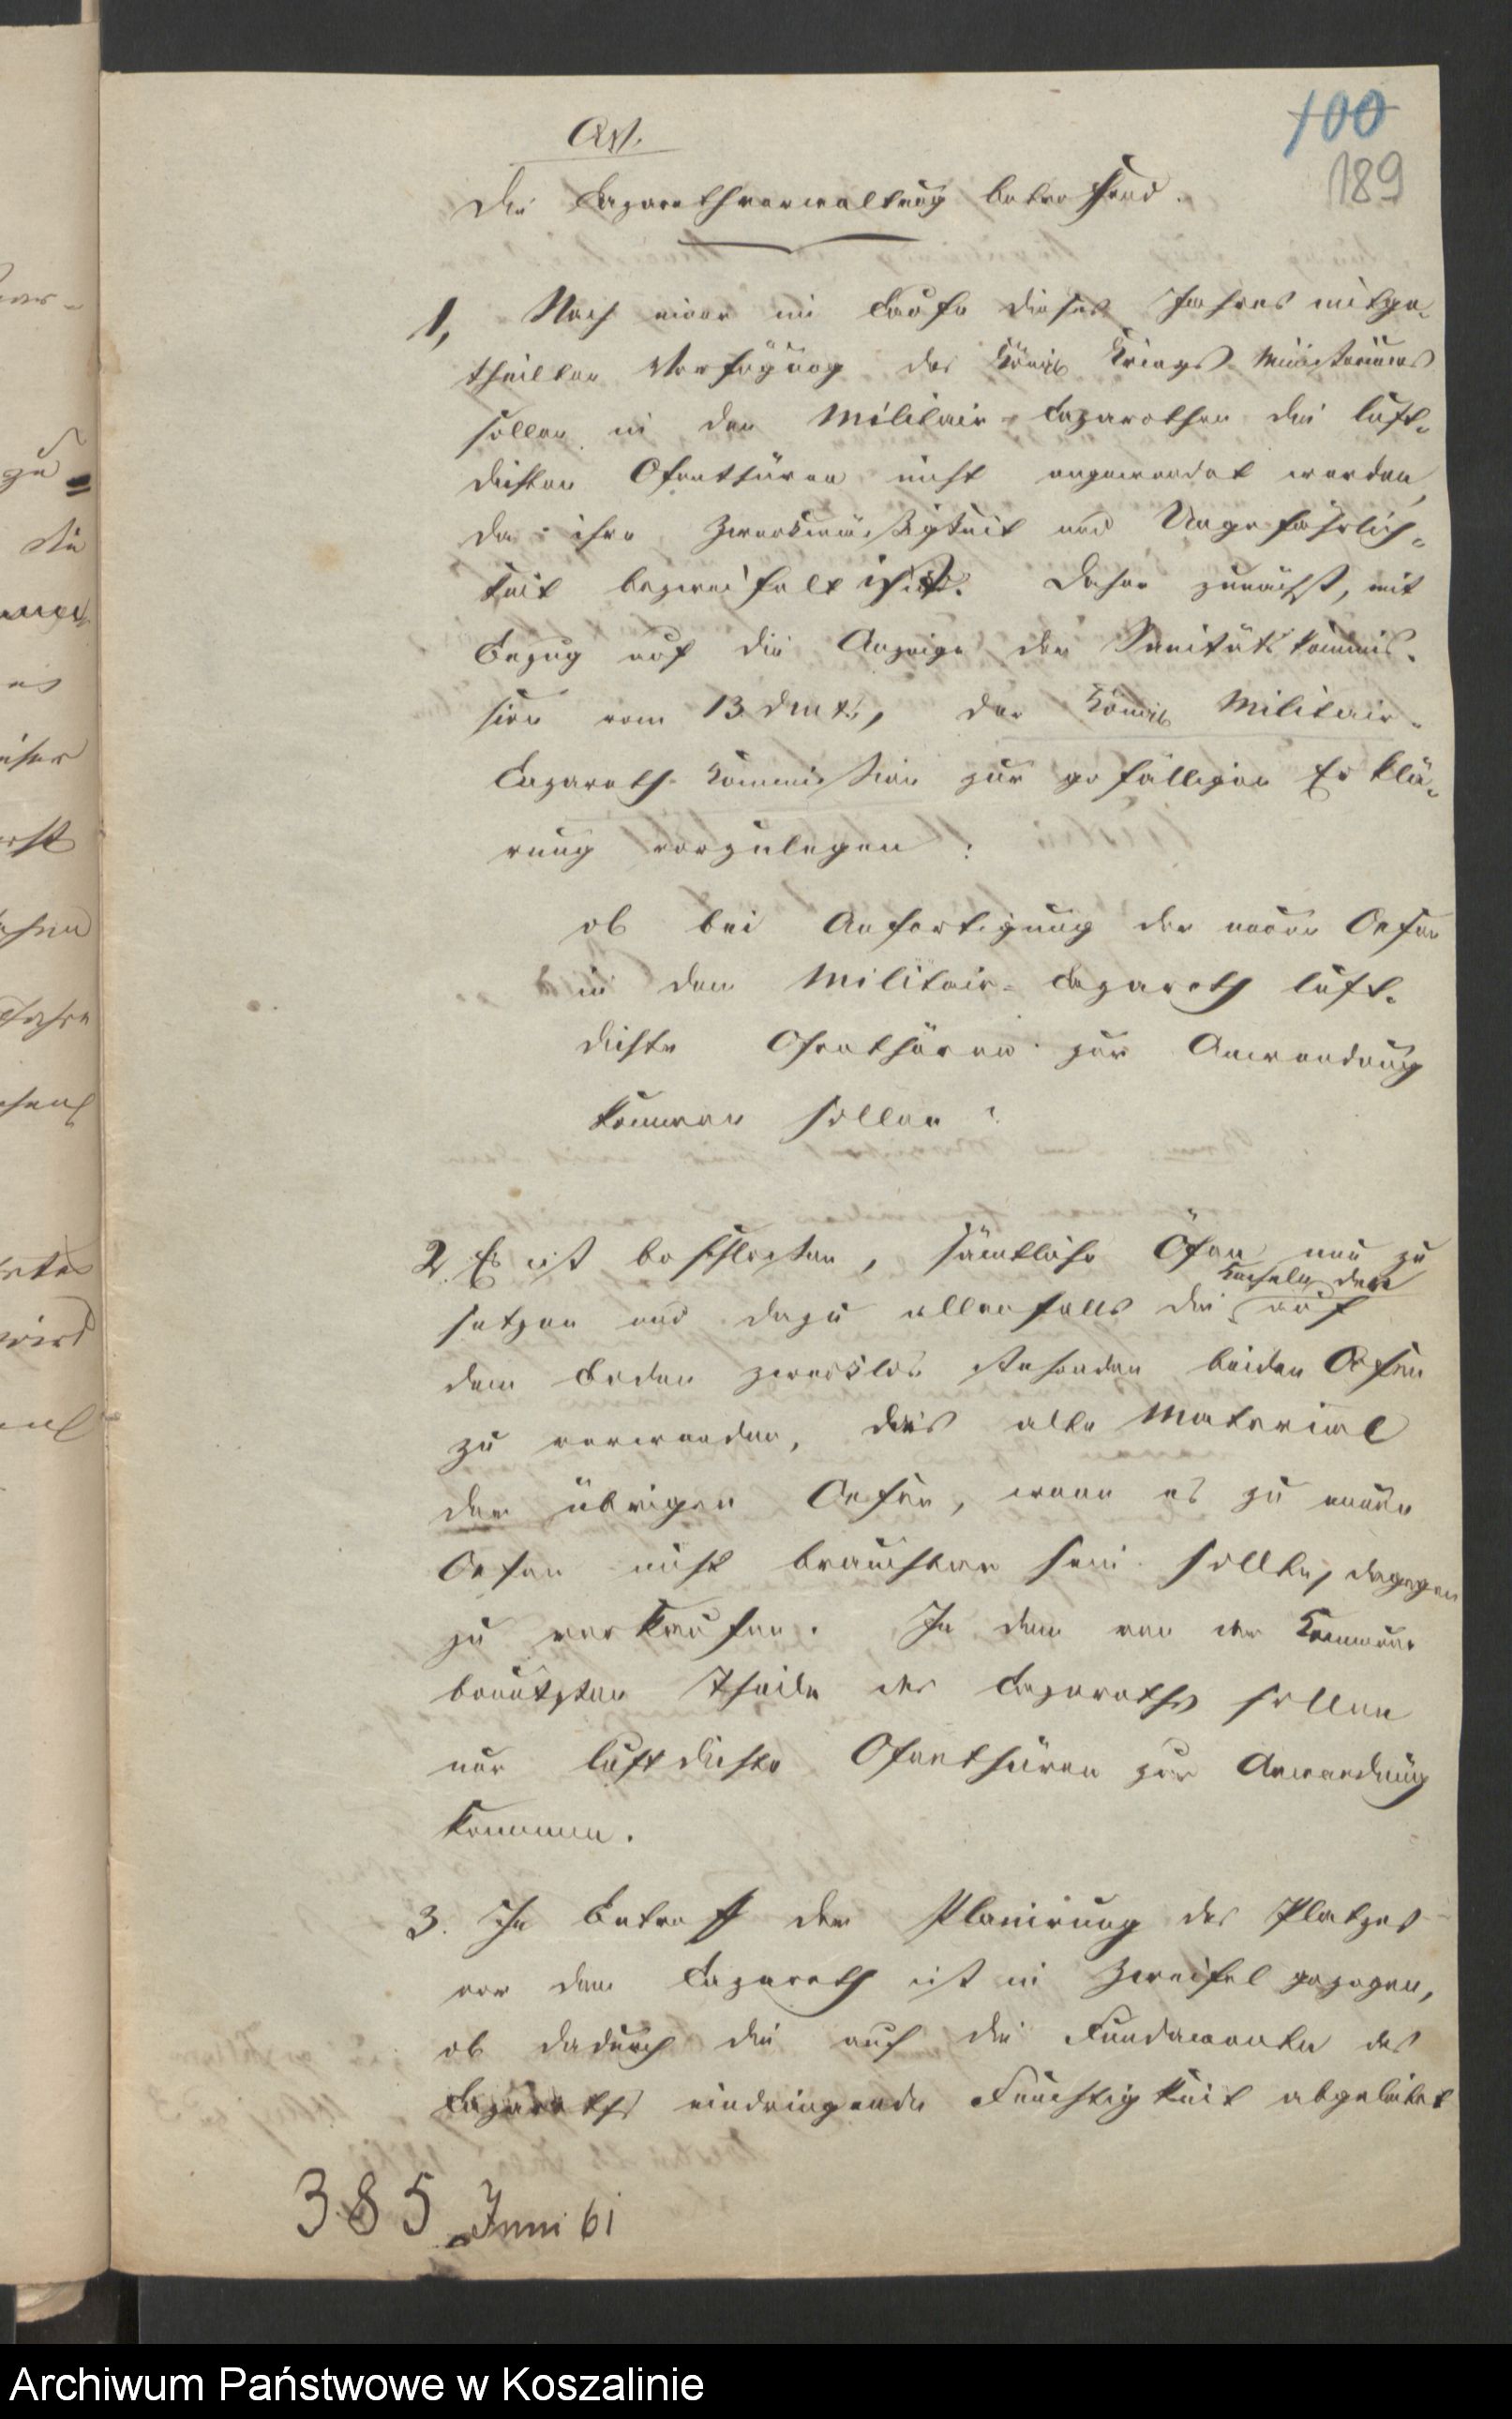 100
189
Die Lazarethverwaltung betreffend.
1, Nach einer im Laufe dieses Jahres mitge-
theilten Verfügung des Königl Kriegs Ministeriums
sollen in den Militair-Lazarethen die luft-
dichten Ofenthüren nicht angewendet werden,
da ihre Zweckmäßigkeit und Ungefährlich-
keit bezweifelt ist. Daher zunächst, mit
Bezug auf die Anzeige der Sanitätskommis-
sion vom 13 d mts, der Königl Militair-
Lazareth-Kommission zur gefälligen Erklä-
rung vorzulegen:
ob bei Anfertigung der neuen Oefen
in dem Militair-Lazareth luft-
dichte Ofenthüren zur Anwendung
kommen sollen?
2. Es ist beschlossen, sämtliche Öfen neu zu
Kacheln der
setzen und dazu allenfalls die auf
dem Boden zwecklos stehenden beiden Oefen
zu verwenden, das alte Material
der übrigen Oefen, wenn es zu neuen
Oefen nicht brauchbar sein sollte, dagegen
zu verkaufen. In dem von der Kommune
benutzten Theile des Lazareths sollen
nur luftdichte Ofenthüren zur Anwendung
kommen.
3. In Betreff der Planirung des Platzes
vor dem Lazareth ist in Zweifel gezogen,
ob dadurch die auf die Fundamente des
Lazareths eindringende Feuchtigkeit abgeleitet
385 Juni 61
Archiwum Państwowe w Koszalinie